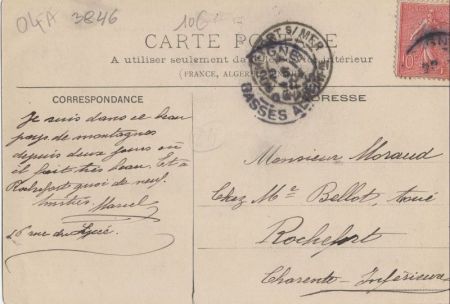 04FA 3846
10€
CARTE POSTALE
A utiliser seulement dans le intérieur
(FRANCE, ALGER
CORRESPONDANCE
ADRESSE
DIGNE
BASSES ALPES
10
Je suis dans ce beau
pays de montagnes
depuis deux jours ou
il fait très beau. Et a
Rochefort quoi de neuf.
Marcel
16 rue du Lycée
Monsieur Moraud
Chez Me Bellot, avoué
Rochefort
Charente-Inférieure